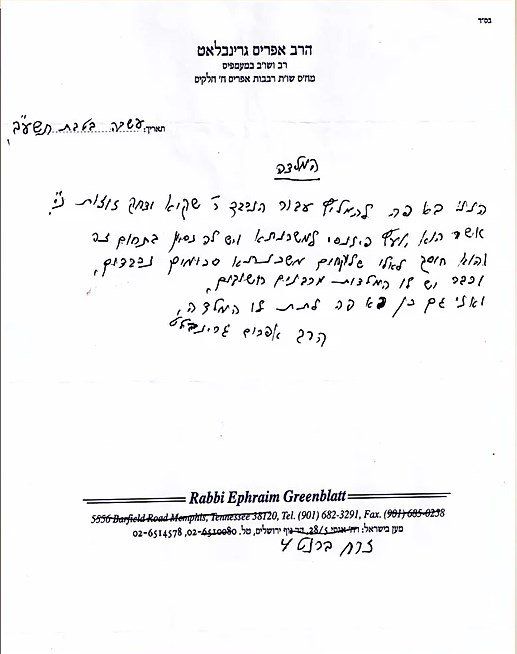 בס"ד
הרב אפרים גרינבלאט
רב ושו"ב במעמפיס
מח"ס שו"ת רבבות אפרים ח' חלקים
תאריך: עשרה בטבת תשע"ב
המלצה
הנני בא פה להמליץ עבור הנכבד ר' יצחק נ"י
אשר הוא יועץ פיננסי למשכנתא ויש לו נסיון בתחום זה
והוא חוסך לאלו שלוקחים משכנתא סכומים נכבדים,
וכבר יש לו המלצות מרבנים חשובים,
ואני גם כן בא פה לתת לו המלצה,
הרב אפרים גרינבלט
Rabbi Ephraim Greenblatt
5556 Barfield Road Memphis, Tennessee 38120, Tel. (901) 682-3291, Fax. (901) 685-0258
מען בישראל: 28/5, ירושלים, טל. 02-6510080, 02-6514578
ברנט 4